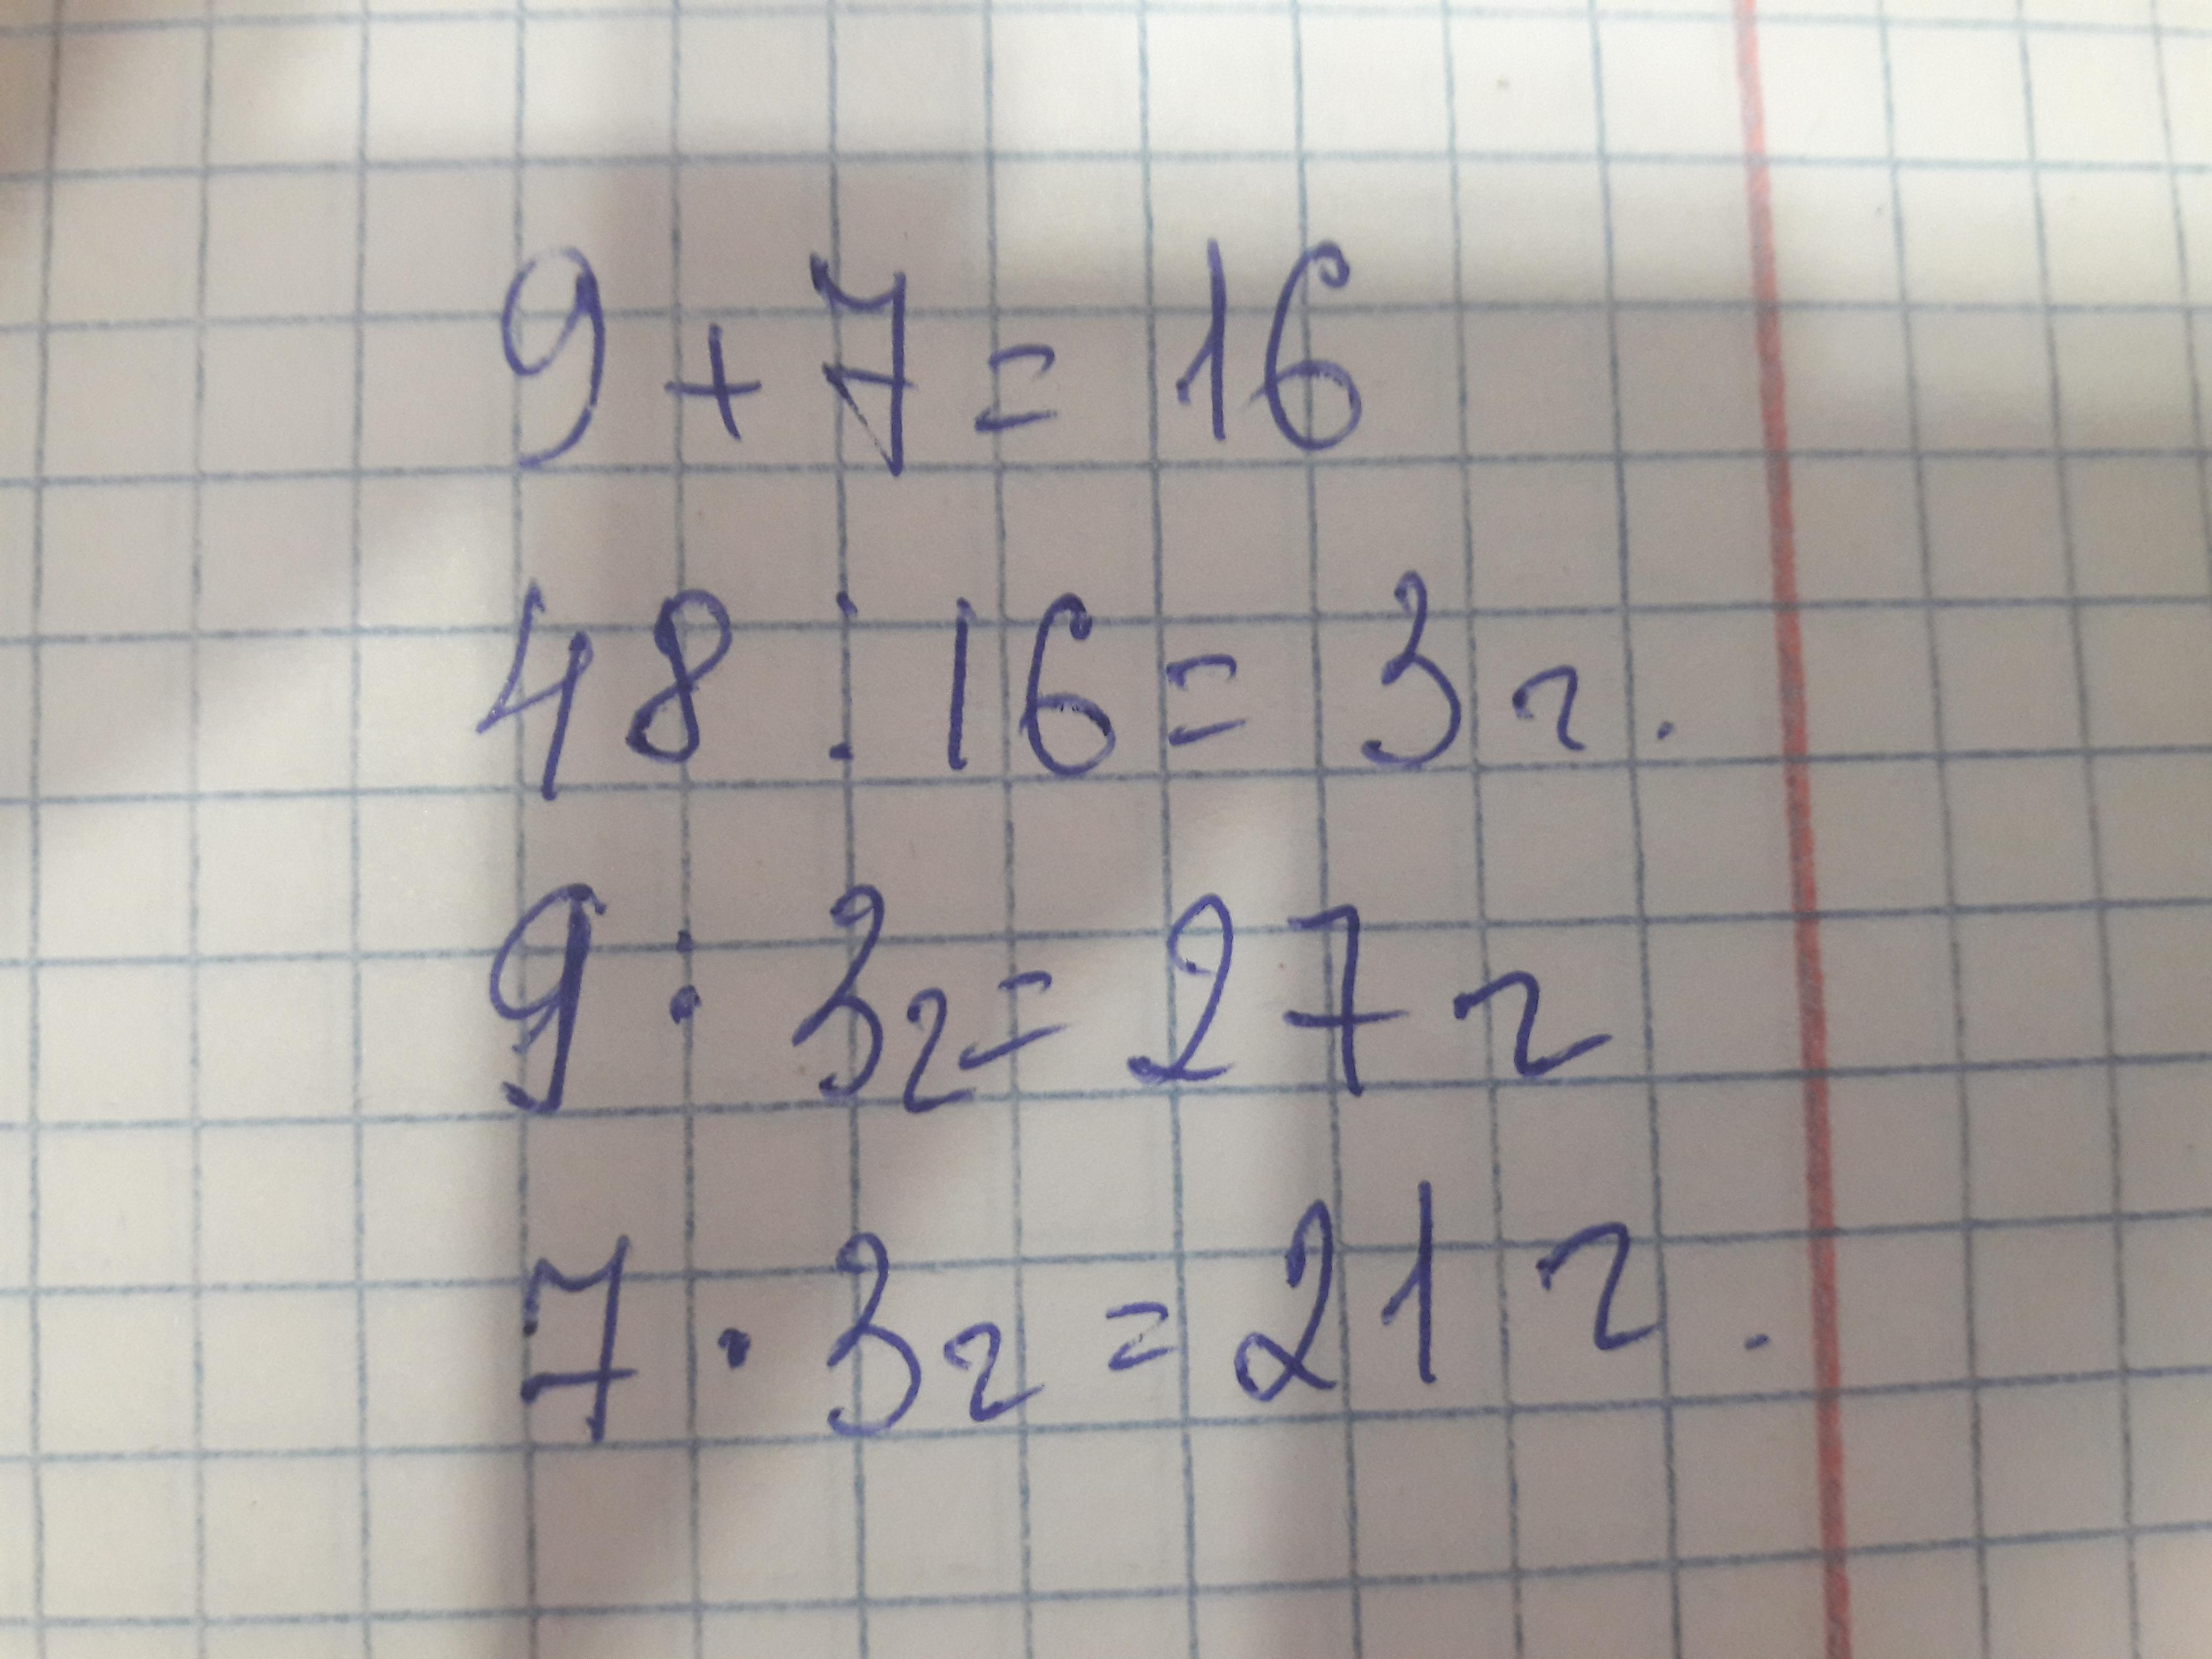 9 + 7 = 16
48 : 16 = 3 г.
9 : 3г = 27 г
7 · 3г = 21 г.